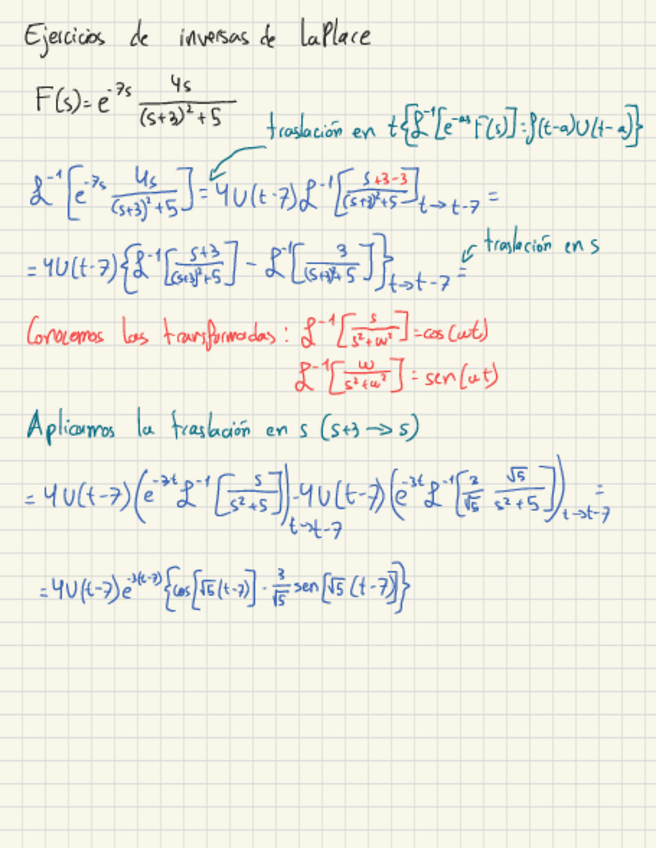 Ejercicios de inversas de LaPlace
F(s)=e^{-7s} \frac{4s}{(s+3)^2+5}
traslación en t{ℒ^{-1}[e^{-as}F(s)]=f(t-a)U(t-a)}
ℒ^{-1}[e^{-7s} \frac{4s}{(s+3)^2+5}]=4U(t-7)ℒ^{-1}[\frac{s+3-3}{(s+3)^2+5}]_{t→t-7}=
=4U(t-7){ℒ^{-1}[\frac{s+3}{(s+3)^2+5}]-ℒ^{-1}[\frac{3}{(s+3)^2+5}]}_{t→t-7}=
traslación en s
Conocemos las transformadas: ℒ^{-1}[\frac{s}{s^2+ω^2}]=cos(ωt)
ℒ^{-1}[\frac{ω}{s^2+ω^2}]=sen(ωt)
Aplicamos la traslación en s (s+3→s)
=4U(t-7)(e^{-3t}ℒ^{-1}[\frac{s}{s^2+5}])_{t→t-7}-4U(t-7)(e^{-3t}ℒ^{-1}[\frac{3}{√5} \frac{√5}{s^2+5}])_{t→t-7}=
=4U(t-7)e^{-3(t-7)}{cos[√5(t-7)]-\frac{3}{√5}sen[√5(t-7)]}